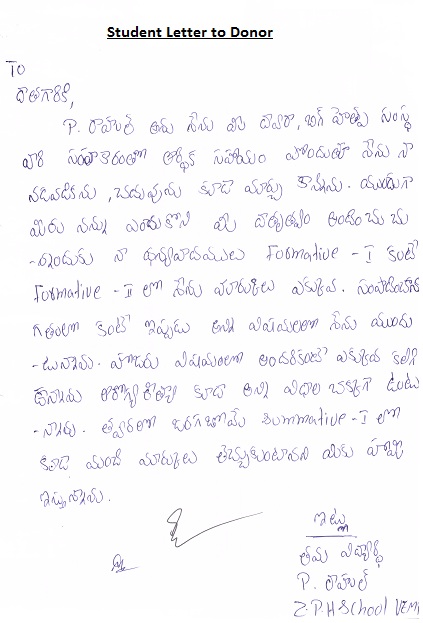 Student Letter to Donor
To
దాతగారికి,
P. రాహుల్ అను నేను మీ ద్వారా, బిగ్ హెల్ప్ సంస్థ
వారి సహకారంతో ఆర్థిక సహాయం పొందుతూ నేను నా
నడవడికను, చదువును కూడా మార్చు కొన్నాను. ముందుగా
మీరు నన్ను ఎందుకోని మీ దాతృత్వం అందించు చు
-న్నందుకు నా ధన్యవాదములు Formative - I కంటే
Formative - II లో నేను మార్కులు ఎక్కువ. సంపాదించాను
గతంలో కంటే ఇప్పుడు అన్ని విషయలలో నేను ముందు
-టున్నాను. హాజరు విషయంలో అందరికంటే ఎక్కువ కలిగి
ఉన్నాను ఆరోగ్య రీత్యా కూడా అన్ని విధాల చక్కగా ఉంటు
-న్నాను. త్వరలో జరగబోయే Summative - I లో
కూడా మంచి మార్కులు తెచ్చుకుంటానని మీకు హామి
ఇస్తున్నాను.
ఇట్లు
తమ విద్యార్థి
P. రాహుల్
Z.P.H School VEMI